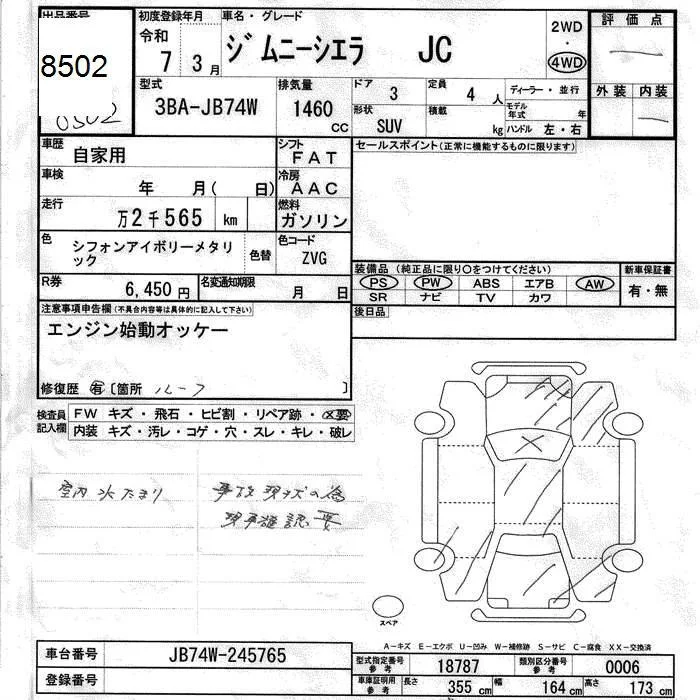 出品番号
8502
0502
初度登録年月
令和 7 3月
車名・グレード
ジムニーシエラ JC
2WD
・
4WD
評価点
外装 内装
型式
3BA-JB74W
排気量
1460 cc
ドア 3
定員 4 人
ディーラー・並行
形状 SUV
積載 kg
モデル年式 年
ハンドル 左・右
車歴
自家用
シフト
FAT
車検
年 月( 日)
冷房
AAC
走行
万2千565 km
燃料
ガソリン
色
シフォンアイボリーメタリック
色替
色コード
ZVG
R券 6,450円
名変通知期限 月 日
セールスポイント(正常に機能するものに限ります)
装備品(純正品に限り○をつけてください)
PS PW ABS エアB AW
SR ナビ TV カワ
新車保証書
有・無
後日品
注意事項申告欄(不具合内容等は具体的に記入して下さい)
エンジン始動オッケー
修復歴 有 [箇所 ルーフ ]
検査員記入欄
FW キズ・飛石・ヒビ割・リペア跡・X要
内装 キズ・汚レ・コゲ・穴・スレ・キレ・破レ
室内水たまり
事故現状の為
現車確認要
スペア
A-キズ E-エクボ U-凹み W-補修跡 S-サビ C-腐食 XX-交換済
車台番号 JB74W-245765
登録番号
型式指定番号参考 18787
類別区分番号参考 0006
車庫証明用参考 長さ 355 cm 幅 164 cm 高さ 173 cm